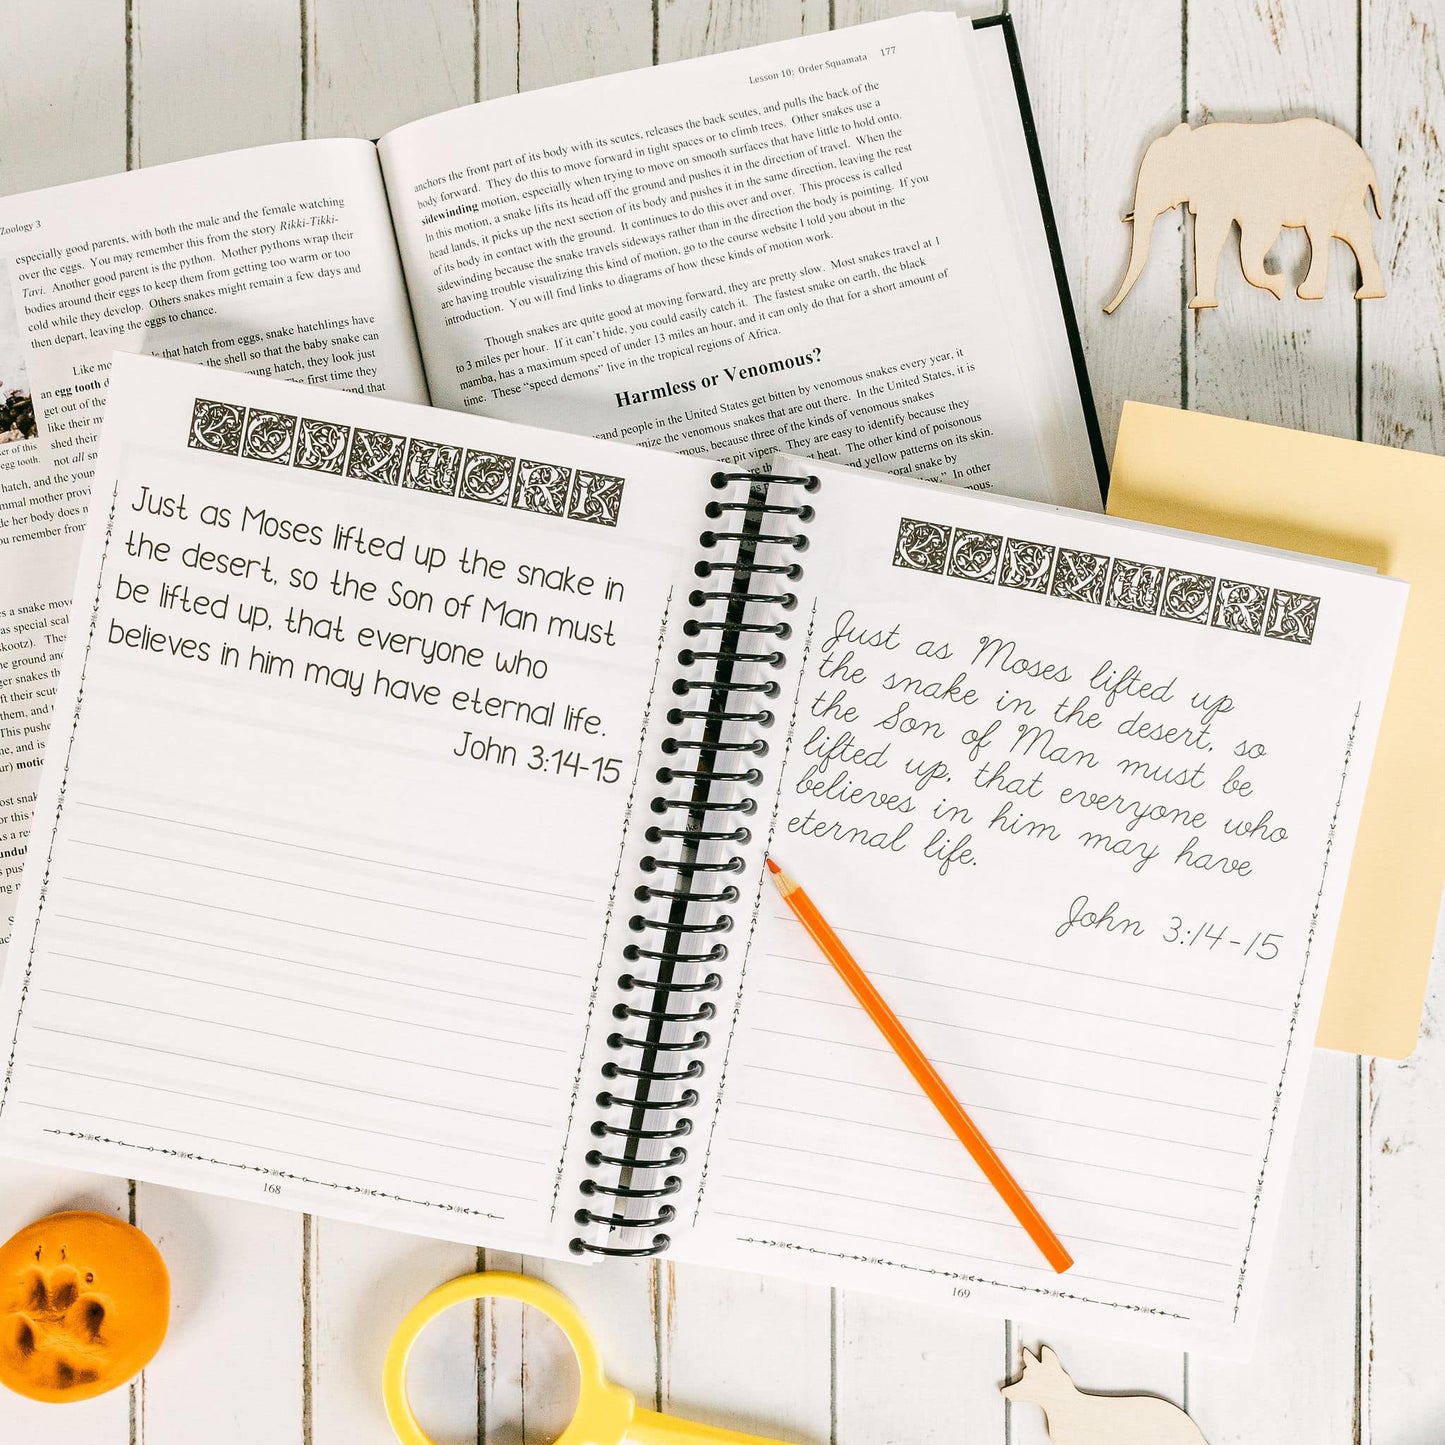 Zoology 3
especially good parents, with both the male and the female watching
over the eggs. You may remember this from the story Rikki-Tikki-
Tavi. Another good parent is the python. Mother pythons wrap their
bodies around their eggs to keep them from getting too warm or too
cold while they develop. Others snakes might remain a few days and
then depart, leaving the eggs to chance.
Like
that hatch from eggs, snake hatchlings have
an egg tooth
the shell so that the baby snake can
get out of the
young hatch, they look just
like their
The first time they
shed their
and that
egg tooth.
not all
hatch, and the
mother
her body does
remember from
Lesson 10: Order Squamata 177
anchors the front part of its body with its scutes, releases the back scutes, and pulls the back of the
body forward. They do this to move forward in tight spaces or to climb trees. Other snakes use a
sidewinding motion, especially when trying to move on smooth surfaces that have little to hold onto.
In this motion, a snake lifts its head off the ground and pushes it in the direction of travel. When the
head lands, it picks up the next section of its body and pushes it in the same direction, leaving the rest
of its body in contact with the ground. It continues to do this over and over. This process is called
sidewinding because the snake travels sideways rather than in the direction the body is pointing. If you
are having trouble visualizing this kind of motion, go to the course website I told you about in the
introduction. You will find links to diagrams of how these kinds of motion work.
Though snakes are quite good at moving forward, they are pretty slow. Most snakes travel at 1
to 3 miles per hour. If it can't hide, you could easily catch it. The fastest snake on earth, the black
mamba, has a maximum speed of under 13 miles an hour, and it can only do that for a short amount of
time. These "speed demons" live in the tropical regions of Africa.
Harmless or Venomous?
people in the United States get bitten by venomous snakes every year, it
the venomous snakes that are out there. In the United States, it is
because three of the kinds of venomous snakes
are pit vipers. They are easy to identify because they
heat. The other kind of poisonous
and yellow patterns on its skin.
coral snake by
In other
COPYWORK
Just as Moses lifted up the snake in
the desert, so the Son of Man must
be lifted up, that everyone who
believes in him may have eternal life.
John 3:14-15
168
COPYWORK
Just as Moses lifted up
the snake in the desert, so
the Son of Man must be
lifted up, that everyone who
believes in him may have
eternal life.
John 3:14-15
169